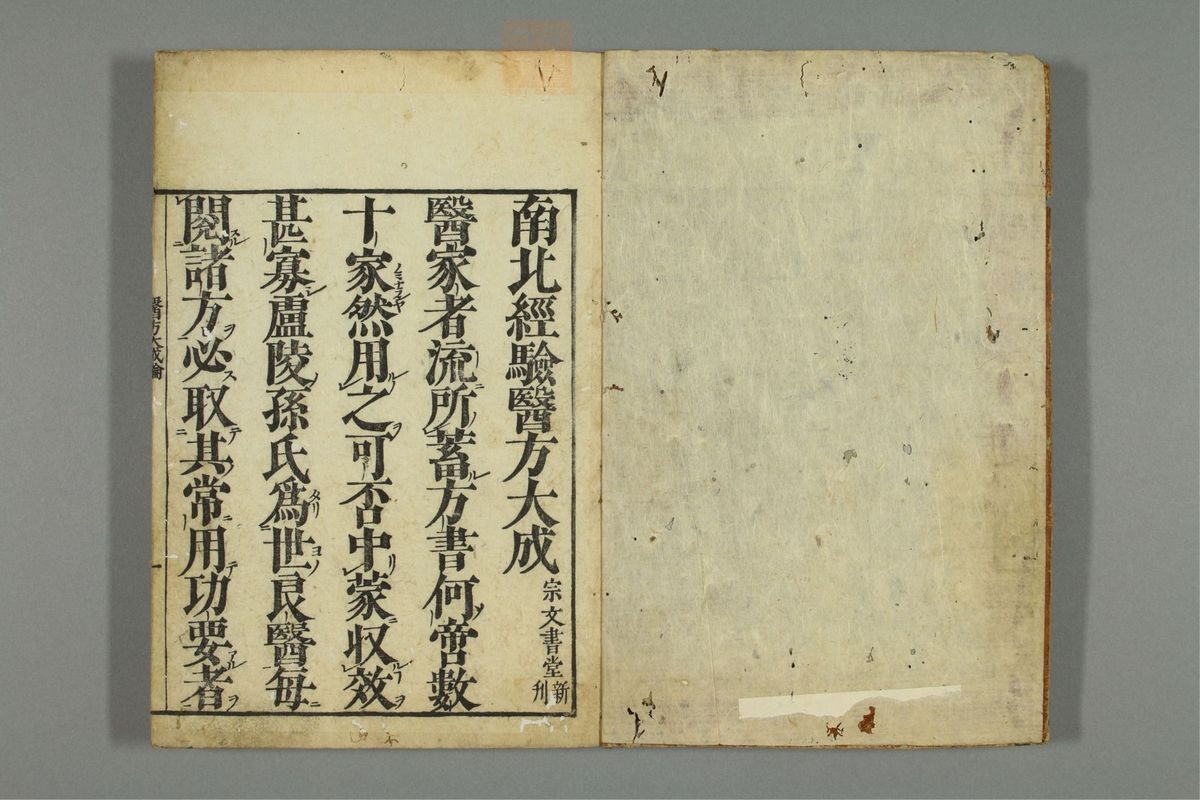 南北經驗醫方大成 宗文書堂新刊
醫家者流所蓄方書何啻數
十家然用之可否中蒙収效
甚寡盧陵孫氏爲世良醫每
閱諸方必取其常用功要者
醫方大成論 一